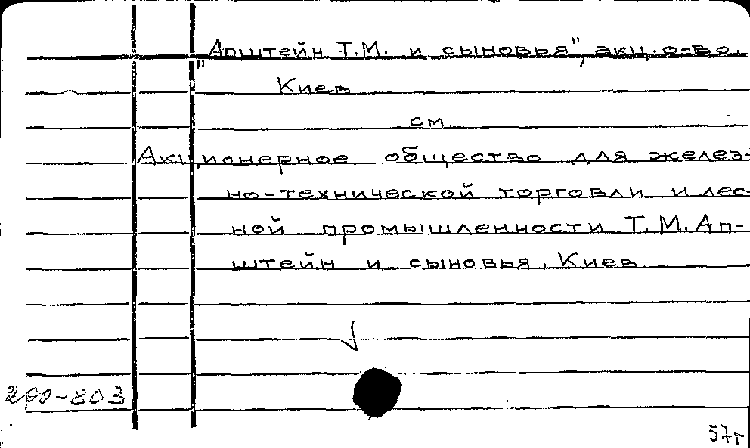 "Апштейн Т.М. и сыновья", акц. о-во,
Киев
см
Акционерное общество для желез-
но-технической торговли и лес-
ной промышленности Т.М. Ап-
штейн и сыновья, Киев
260-803
57г